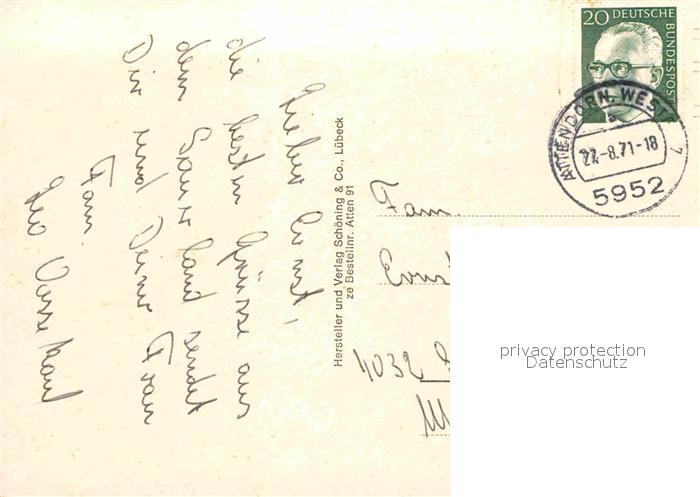 Lieber Ernst,
die besten Grüsse aus
dem Sauerland sendet
Dir und Deiner Frau
Fam.
Hersteller und Verlag Schöning & Co., Lübeck
ze Bestellnr. Atten 91
20 DEUTSCHE
BUNDESPOST
ATTENDORN, WEST 1
a
27.-8.71-18
5952
Fam.
Erns
4032
privacy protection
Datenschutz